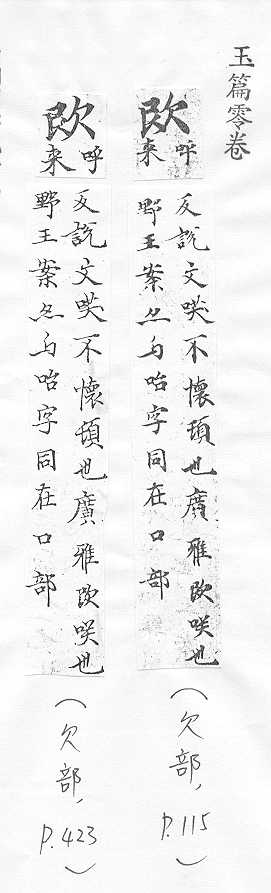 玉篇零卷
呼
来
反說文咲不懷也廣雅咲也
野王案亦与咍字同在口部
(欠部, p.115)
呼
来
反說文咲不懷也廣雅咲也
野王案亦与咍字同在口部
(欠部, p.423)